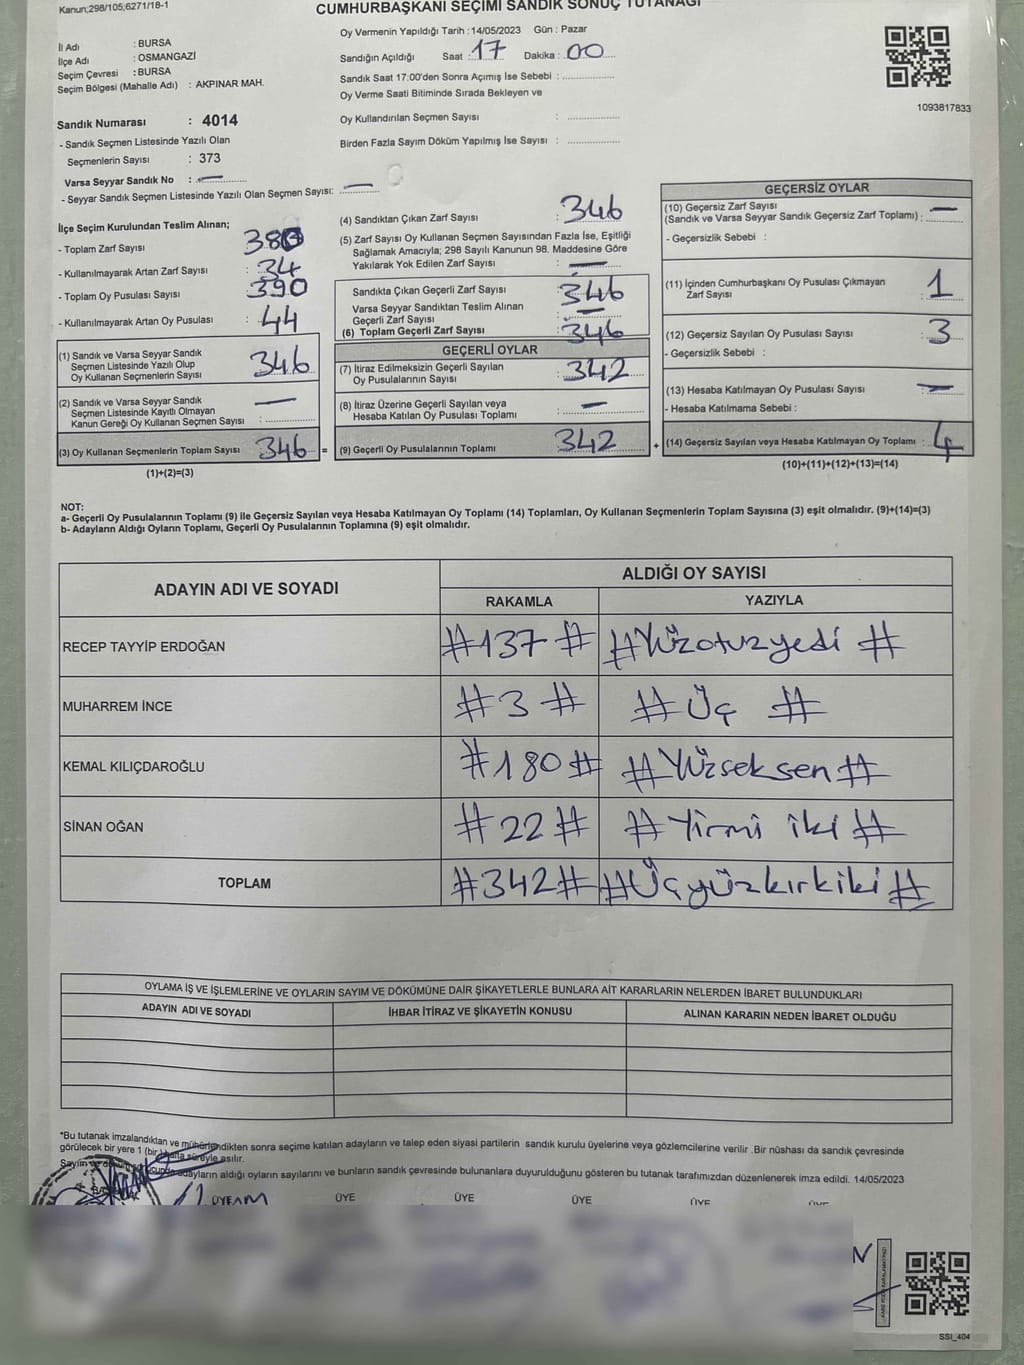 Kanun;298/105;6271/18-1
CUMHURBAŞKANI SEÇİMİ SANDIK SONUÇ TUTANAĞI
İl Adı : BURSA
İlçe Adı : OSMANGAZİ
Seçim Çevresi : BURSA
Seçim Bölgesi (Mahalle Adı) : AKPINAR MAH.
Oy Vermenin Yapıldığı Tarih : 14/05/2023 Gün : Pazar
Sandığın Açıldığı Saat : 17 Dakika : 00
Sandık Saat 17:00'den Sonra Açımış İse Sebebi :
Oy Verme Saati Bitiminde Sırada Bekleyen ve
Oy Kullandırılan Seçmen Sayısı :
Birden Fazla Sayım Döküm Yapılmış İse Sayısı :
1093817833
Sandık Numarası : 4014
- Sandık Seçmen Listesinde Yazılı Olan
Seçmenlerin Sayısı : 373
Varsa Seyyar Sandık No : —
- Seyyar Sandık Seçmen Listesinde Yazılı Olan Seçmen Sayısı: —
İlçe Seçim Kurulundan Teslim Alınan;
- Toplam Zarf Sayısı
- Kullanılmayarak Artan Zarf Sayısı : 34
- Toplam Oy Pusulası Sayısı : 390
- Kullanılmayarak Artan Oy Pusulası : 44
(1) Sandık ve Varsa Seyyar Sandık
Seçmen Listesinde Yazılı Olup
Oy Kullanan Seçmenlerin Sayısı : 346
(2) Sandık ve Varsa Seyyar Sandık
Seçmen Listesinde Kayıtlı Olmayan
Kanun Gereği Oy Kullanan Seçmen Sayısı : —
(3) Oy Kullanan Seçmenlerin Toplam Sayısı : 346 =
(1)+(2)=(3)
(4) Sandıktan Çıkan Zarf Sayısı : 346
(5) Zarf Sayısı Oy Kullanan Seçmen Sayısından Fazla İse, Eşitliği
Sağlamak Amacıyla; 298 Sayılı Kanunun 98. Maddesine Göre
Yakılarak Yok Edilen Zarf Sayısı : —
Sandıkta Çıkan Geçerli Zarf Sayısı : 346
Varsa Seyyar Sandıktan Teslim Alınan
Geçerli Zarf Sayısı : —
(6) Toplam Geçerli Zarf Sayısı : 346
GEÇERLİ OYLAR
(7) İtiraz Edilmeksizin Geçerli Sayılan
Oy Pusulalarının Sayısı : 342
(8) İtiraz Üzerine Geçerli Sayılan veya
Hesaba Katılan Oy Pusulası Toplamı : —
(9) Geçerli Oy Pusulalarının Toplamı : 342 +
GEÇERSİZ OYLAR
(10) Geçersiz Zarf Sayısı
(Sandık ve Varsa Seyyar Sandık Geçersiz Zarf Toplamı) : —
- Geçersizlik Sebebi :
(11) İçinden Cumhurbaşkanı Oy Pusulası Çıkmayan
Zarf Sayısı : 1
(12) Geçersiz Sayılan Oy Pusulası Sayısı : 3
- Geçersizlik Sebebi :
(13) Hesaba Katılmayan Oy Pusulası Sayısı : —
- Hesaba Katılmama Sebebi :
(14) Geçersiz Sayılan veya Hesaba Katılmayan Oy Toplamı : 4
(10)+(11)+(12)+(13)=(14)
NOT:
a- Geçerli Oy Pusulalarının Toplamı (9) ile Geçersiz Sayılan veya Hesaba Katılmayan Oy Toplamı (14) Toplamları, Oy Kullanan Seçmenlerin Toplam Sayısına (3) eşit olmalıdır. (9)+(14)=(3)
b- Adayların Aldığı Oyların Toplamı, Geçerli Oy Pusulalarının Toplamına (9) eşit olmalıdır.
ADAYIN ADI VE SOYADI ALDIĞI OY SAYISI
RAKAMLA YAZIYLA
RECEP TAYYİP ERDOĞAN #137# #Yüzotuzyedi#
MUHARREM İNCE #3# #Üç#
KEMAL KILIÇDAROĞLU #180# #Yüzseksen#
SİNAN OĞAN #22# #Yirmi iki#
TOPLAM #342# #Üçyüzkırkiki#
OYLAMA İŞ VE İŞLEMLERİNE VE OYLARIN SAYIM VE DÖKÜMÜNE DAİR ŞİKAYETLERLE BUNLARA AİT KARARLARIN NELERDEN İBARET BULUNDUKLARI
ADAYIN ADI VE SOYADI İHBAR İTİRAZ VE ŞİKAYETİN KONUSU ALINAN KARARIN NEDEN İBARET OLDUĞU
*Bu tutanak imzalandıktan ve mühürlendikten sonra seçime katılan adayların ve talep eden siyasi partilerin sandık kurulu üyelerine veya gözlemcilerine verilir .Bir nüshası da sandık çevresinde
görülecek bir yere 1 (bir) hafta süreyle asılır.
Sayım ve adayların aldığı oyların sayılarını ve bunların sandık çevresinde bulunanlara duyurulduğunu gösteren bu tutanak tarafımızdan düzenlenerek imza edildi. 14/05/2023
ÜYE ÜYE ÜYE ÜYE
SSİ_404